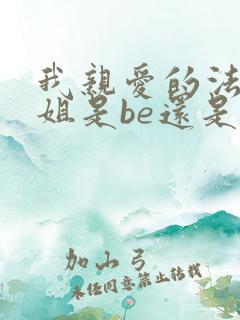 我親愛的法
姐是be還是
加山弓
未任同意禁止转载